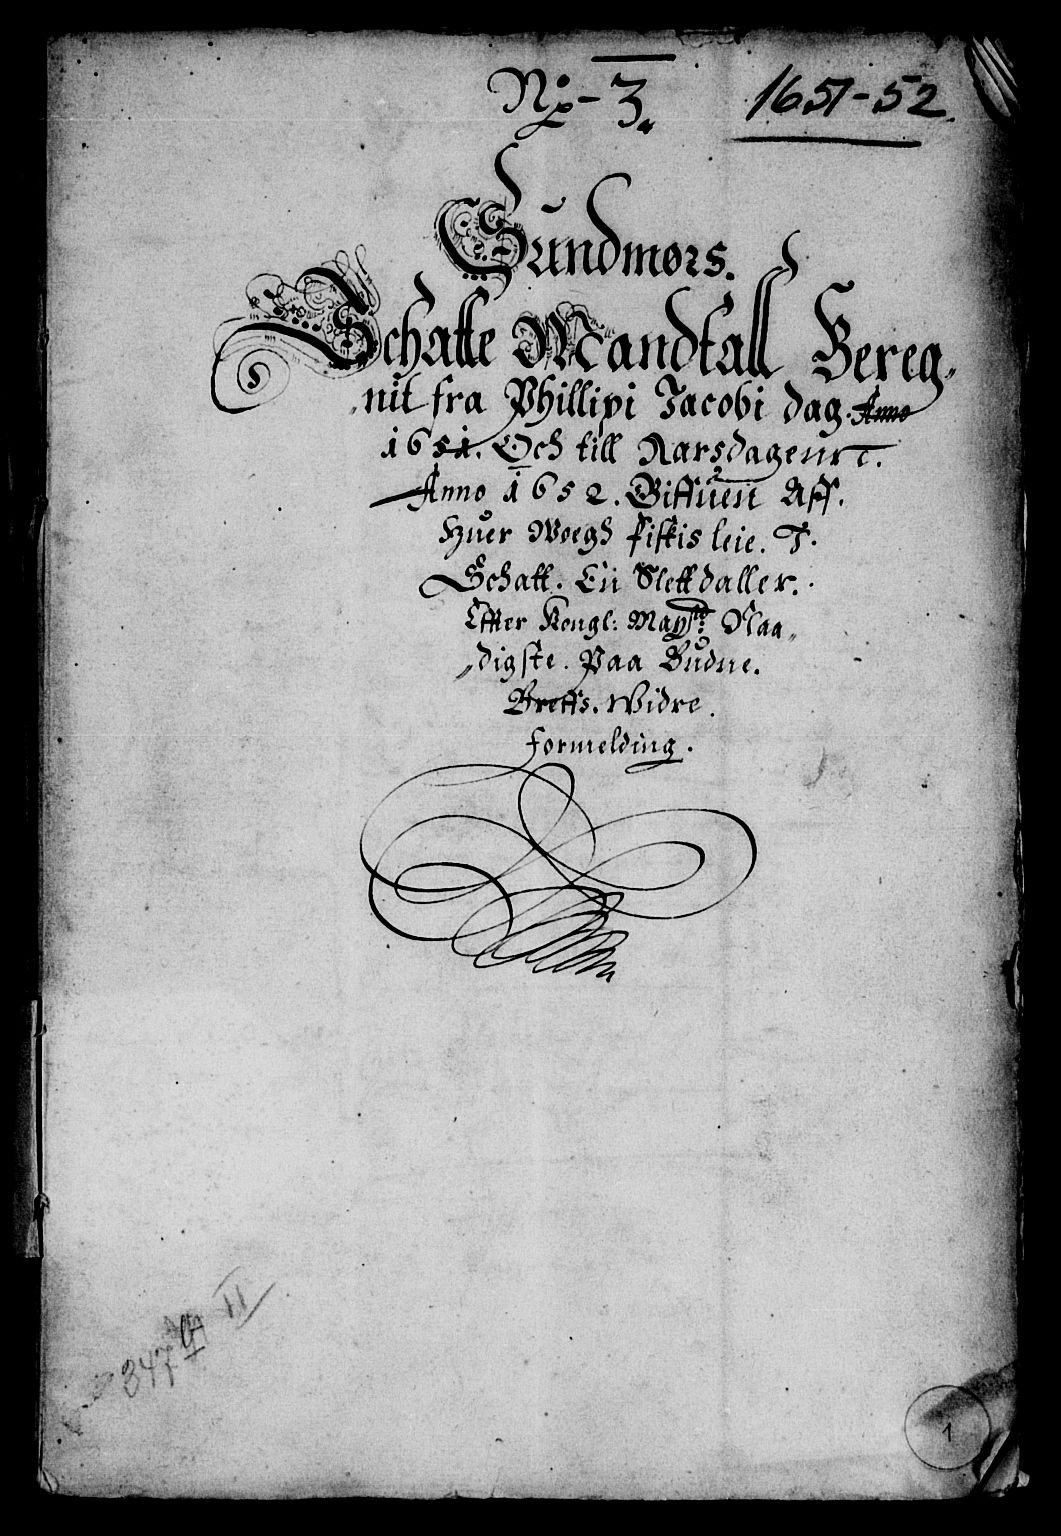 No 3.
1651-52.
Sundmørs.
Schatte Mandtall Bereg-
nit fra Phillipi Jacobi dag. Anno
1651. Och till Aarsdagenn T.
Anno 1652. Giffuen Aff.
Huer Woegh fiskis leie. T.
Schatt. En Slettdaller.
Effter Kongl: Maytts: Naa-
digste. Paa Budne.
Breffs. Widre.
formelding.
347 A II
1